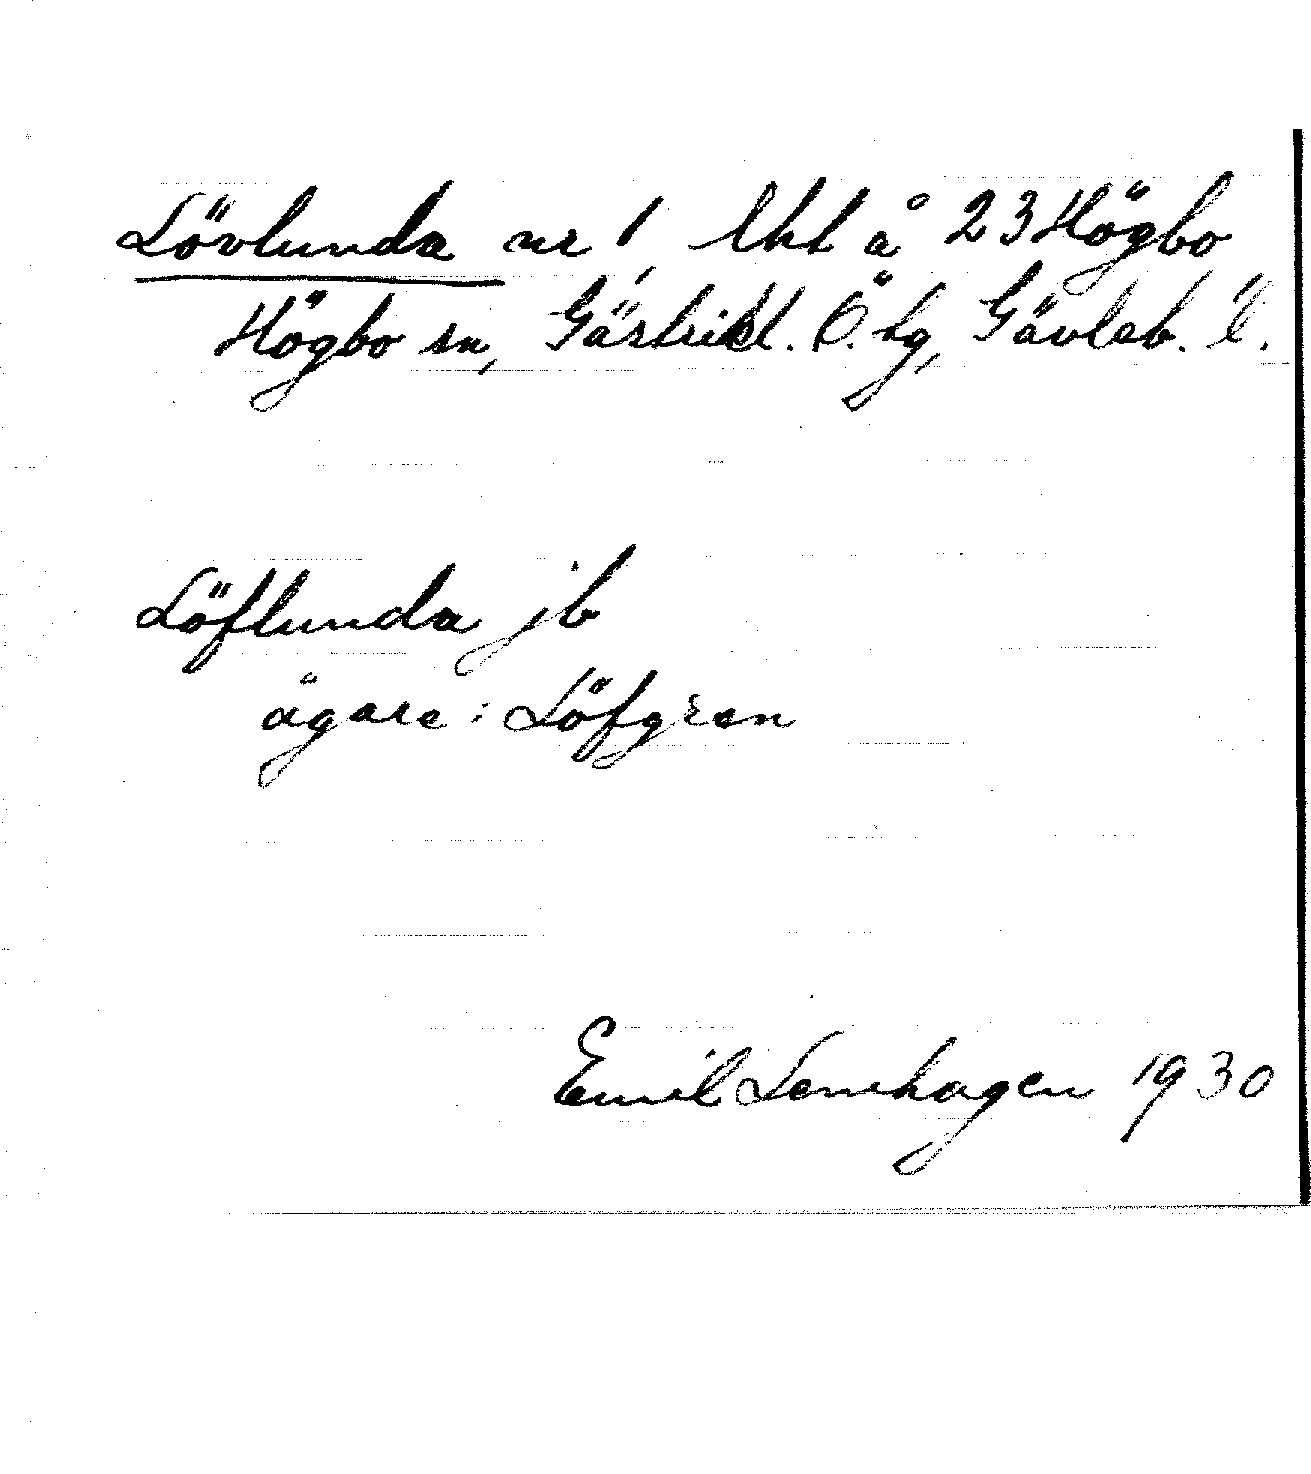 Lövlunda nr 1, lht å 23 Högbo
Högbo sn, Gästrikl. Ö. tg, Gävleb. l.
Löflunda jb
ägare: Löfgren
Emil Lenhagen 1930